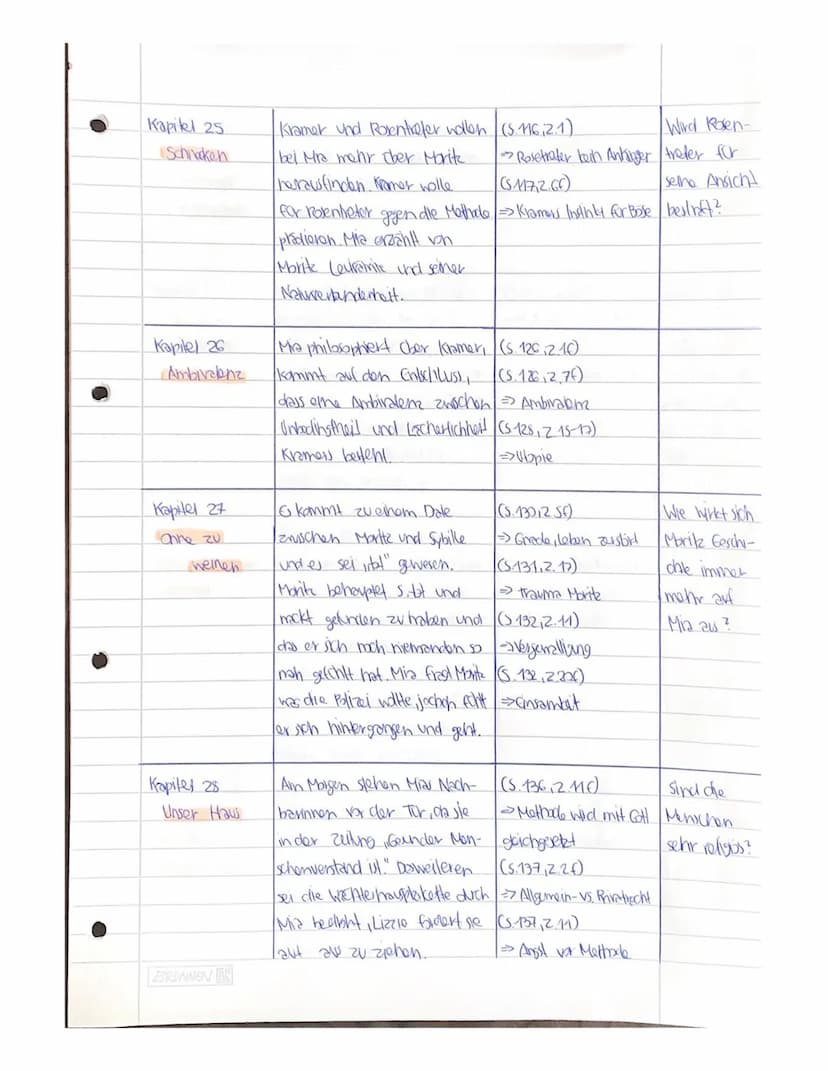 Kapitel 25
Schnecken
Kramer und Rosentreter wollen
bei Mia mehr über Moritz
herausfinden. Kramer wolle
für Rosentreter gegen die Methode
plädieren. Mia erzählt von
Moritz Leukämie und seiner
Naturverbundenheit.
(S.116, Z.1)
=> Rosetreter kein Anhänger
(S.117, Z.6f)
=> Kramers Instinkt für Böse
Wird Rosen-
treter für
seine Ansicht
bestraft?
Kapitel 26
Ambivalenz
Mia philosophiert über Kramer,
kommt auf den Entschluss,
dass eine Ambivalenz zwischen
Unbedingtheit und Lächerlichkeit
Kramers besteht.
(S. 126, Z.1f)
(S. 126, Z.7f)
=> Ambivalenz
(S. 128, Z 15-17)
=> Utopie
Kapitel 27
Ohne zu
weinen
Es kommt zu einem Date
zwischen Moritz und Sybille
und es sei "tot" gewesen.
Moritz behauptet S. tot und
nackt gefunden zu haben und
das er sich noch niemanden so
nah gefühlt hat. Mia fragt Moritz
was die Polizei wollte, jedoch fühlt
er sich hintergangen und geht.
(S.130, Z 5f)
=> Gnade, Leben zustört
(S.131, Z.17)
=> Trauma Moritz
(S 132, Z.11)
=> Vergewaltigung
(S. 132, Z.22f)
=> Einsamkeit
Wie wirkt sich
Moritz Geschi-
chte immer
mehr auf
Mia aus?
Kapitel 28
Unser Haus
Am Morgen stehen Mias Nach-
barinnen vor der Tür, da sie
in der Zeitung "Gesunder Men-
schenverstand ist." Desweiteren
sei die Wächterhausplakette durch
Mia bedroht, Lizzie fordert sie
auf aus zu ziehen.
(S. 136, Z 11f)
=> Methode wird mit Gott
gleichgesetzt
(S.137, Z.2f)
=> Allgemein- vs. Privatrecht
(S.137, Z.11)
=> Angst vor Methode
Sind die
Menschen
sehr religiös?
BRUNNEN